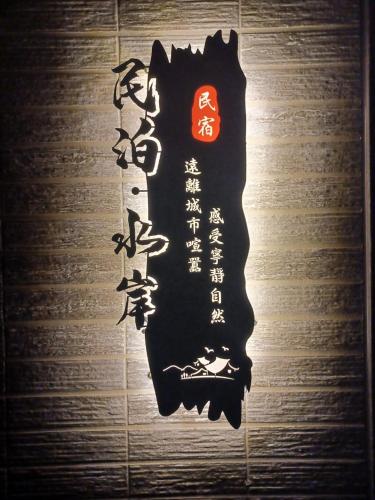 民泊·水岸
民宿
遠離城市喧囂
感受寧靜自然